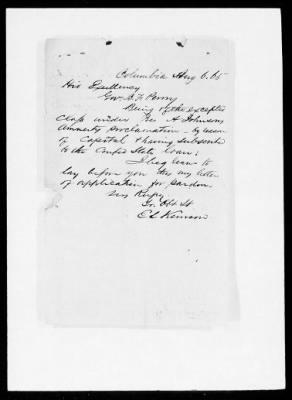 Columbia Aug 6. 65
His Excellency
Gov. B. F. Perry
Being of the excepted
Class under Pre. A Johnsons
Amnesty Proclamation - by reason
of Capital & having subscribed
to the Confed State Loan;
I beg leave to
lay before you this my letter
of application for pardon
Very Respy
Yr. Obt St